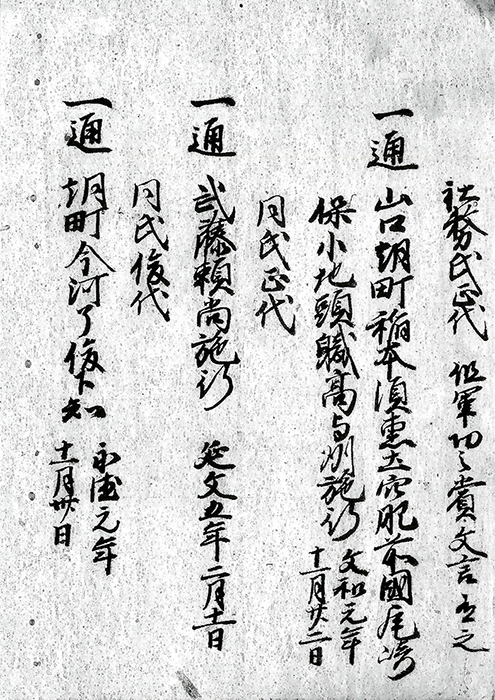 社務氏正代 但軍功之賞文言有之
一通 山口胡町稲本須恵大穴肥前國尾崎
保小地頭職高与州施行 文和元年十一月廿二日
同氏正代
一通 武藤頼尚施行 延文五年二月十一日
同氏俊代
一通 胡町今河了俊下知 永徳元年十一月廿日